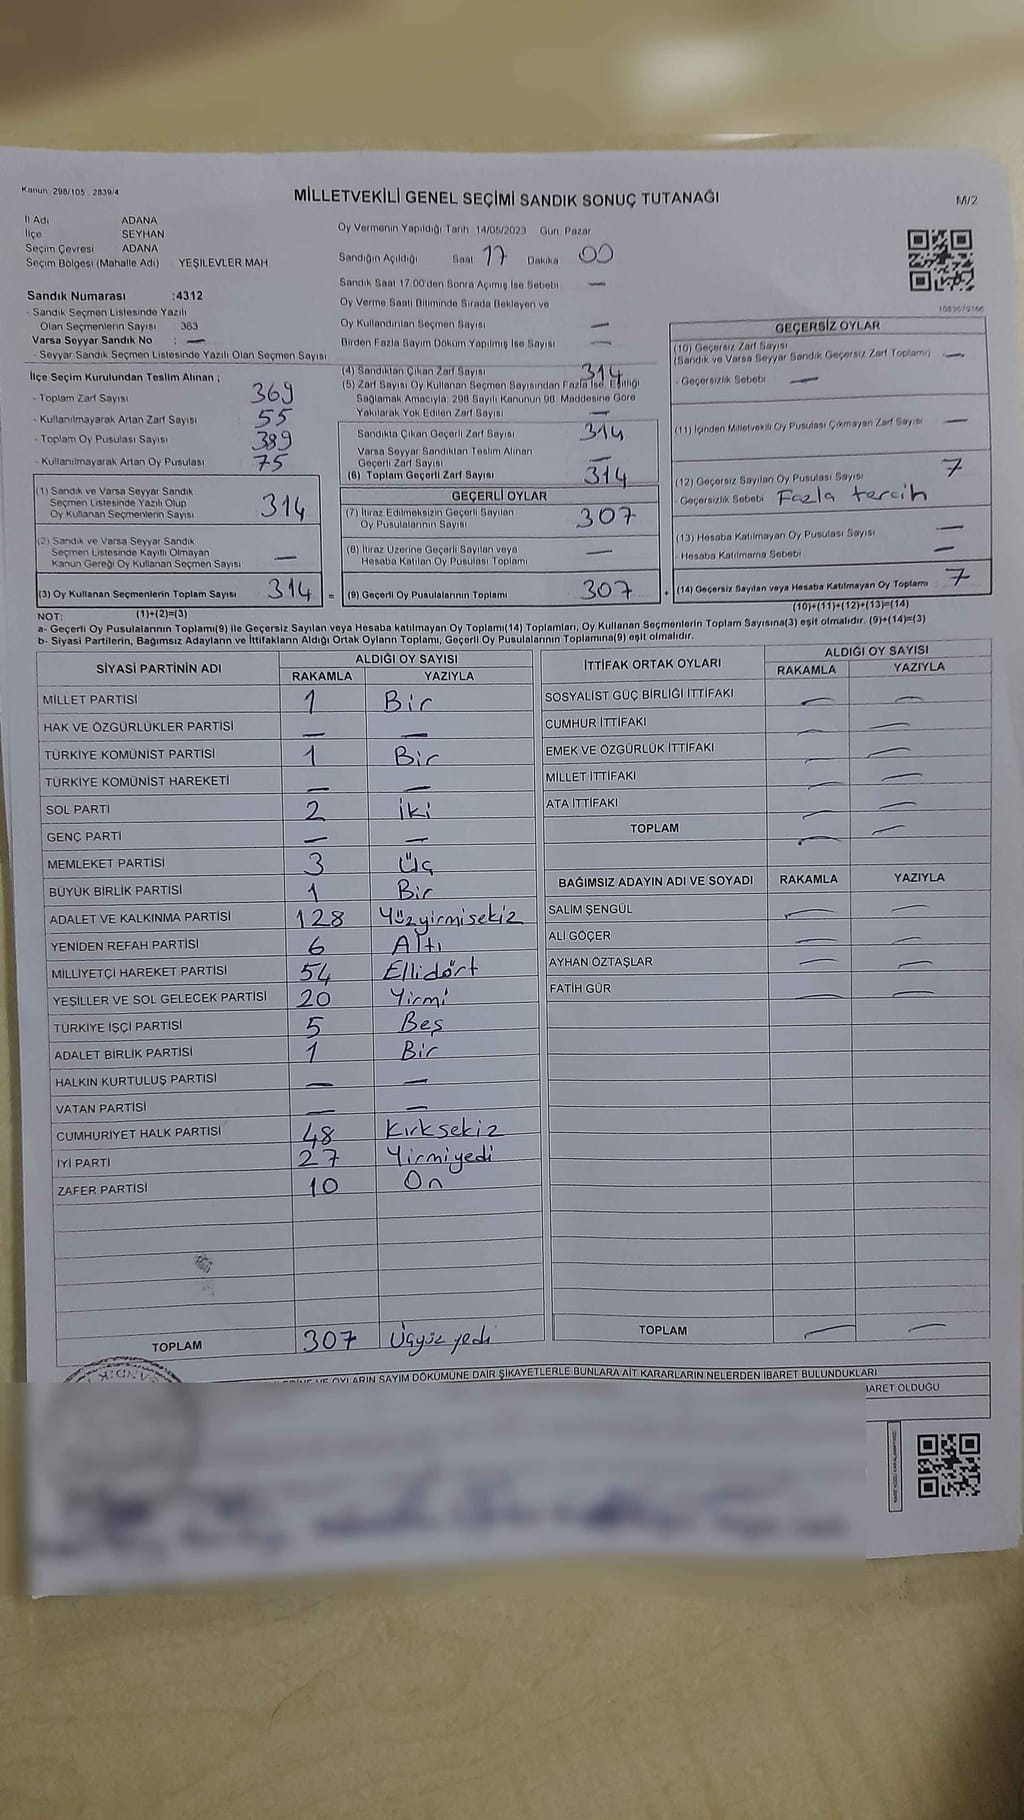 Kanun: 298/105 2839/4
MİLLETVEKİLİ GENEL SEÇİMİ SANDIK SONUÇ TUTANAĞI
M/2
İl Adı ADANA
İlçe SEYHAN
Seçim Çevresi ADANA
Seçim Bölgesi (Mahalle Adı) YEŞİLEVLER MAH
Sandık Numarası :4312
- Sandık Seçmen Listesinde Yazılı
Olan Seçmenlerin Sayısı : 363
Varsa Seyyar Sandık No : —
- Seyyar Sandık Seçmen Listesinde Yazılı Olan Seçmen Sayısı
Oy Vermenin Yapıldığı Tarih 14/05/2023 Gün Pazar
Sandığın Açıldığı Saat 17 Dakika 00
Sandık Saat 17:00'den Sonra Açımış İse Sebebi —
Oy Verme Saati Bitiminde Sırada Bekleyen ve
Oy Kullandırılan Seçmen Sayısı —
Birden Fazla Sayım Döküm Yapılmış İse Sayısı —
İlçe Seçim Kurulundan Teslim Alınan ;
- Toplam Zarf Sayısı 369
- Kullanılmayarak Artan Zarf Sayısı 55
- Toplam Oy Pusulası Sayısı 389
- Kullanılmayarak Artan Oy Pusulası 75
(1) Sandık ve Varsa Seyyar Sandık
Seçmen Listesinde Yazılı Olup
Oy Kullanan Seçmenlerin Sayısı 314
(2) Sandık ve Varsa Seyyar Sandık
Seçmen Listesinde Kayıtlı Olmayan
Kanun Gereği Oy Kullanan Seçmen Sayısı —
(3) Oy Kullanan Seçmenlerin Toplam Sayısı 314 =
(1)+(2)=(3)
(4) Sandıktan Çıkan Zarf Sayısı 314
(5) Zarf Sayısı Oy Kullanan Seçmen Sayısından Fazla İse, Eşitliği
Sağlamak Amacıyla, 298 Sayılı Kanunun 98. Maddesine Göre
Yakılarak Yok Edilen Zarf Sayısı —
Sandıkta Çıkan Geçerli Zarf Sayısı 314
Varsa Seyyar Sandıktan Teslim Alınan
Geçerli Zarf Sayısı —
(6) Toplam Geçerli Zarf Sayısı 314
GEÇERLİ OYLAR
(7) İtiraz Edilmeksizin Geçerli Sayılan
Oy Pusulalarının Sayısı 307
(8) İtiraz Üzerine Geçerli Sayılan veya
Hesaba Katılan Oy Pusulası Toplamı —
(9) Geçerli Oy Pusulalarının Toplamı 307 +
GEÇERSİZ OYLAR
(10) Geçersiz Zarf Sayısı
(Sandık ve Varsa Seyyar Sandık Geçersiz Zarf Toplamı) —
- Geçersizlik Sebebi —
(11) İçinden Milletvekili Oy Pusulası Çıkmayan Zarf Sayısı —
(12) Geçersiz Sayılan Oy Pusulası Sayısı 7
- Geçersizlik Sebebi Fazla tercih
(13) Hesaba Katılmayan Oy Pusulası Sayısı —
- Hesaba Katılmama Sebebi —
(14) Geçersiz Sayılan veya Hesaba Katılmayan Oy Toplamı 7
(10)+(11)+(12)+(13)=(14)
NOT:
a- Geçerli Oy Pusulalarının Toplamı(9) ile Geçersiz Sayılan veya Hesaba katılmayan Oy Toplamı(14) Toplamları, Oy Kullanan Seçmenlerin Toplam Sayısına(3) eşit olmalıdır. (9)+(14)=(3)
b- Siyasi Partilerin, Bağımsız Adayların ve İttifakların Aldığı Ortak Oyların Toplamı, Geçerli Oy Pusulalarının Toplamına(9) eşit olmalıdır.
SİYASİ PARTİNİN ADI ALDIĞI OY SAYISI
RAKAMLA YAZIYLA
MİLLET PARTİSİ 1 Bir
HAK VE ÖZGÜRLÜKLER PARTİSİ — —
TÜRKİYE KOMÜNİST PARTİSİ 1 Bir
TÜRKİYE KOMÜNİST HAREKETİ — —
SOL PARTİ 2 İki
GENÇ PARTİ — —
MEMLEKET PARTİSİ 3 Üç
BÜYÜK BİRLİK PARTİSİ 1 Bir
ADALET VE KALKINMA PARTİSİ 128 Yüzyirmisekiz
YENİDEN REFAH PARTİSİ 6 Altı
MİLLİYETÇİ HAREKET PARTİSİ 54 Ellidört
YEŞİLLER VE SOL GELECEK PARTİSİ 20 Yirmi
TÜRKİYE İŞÇİ PARTİSİ 5 Beş
ADALET BİRLİK PARTİSİ 1 Bir
HALKIN KURTULUŞ PARTİSİ — —
VATAN PARTİSİ — —
CUMHURİYET HALK PARTİSİ 48 Kırksekiz
İYİ PARTİ 27 Yirmiyedi
ZAFER PARTİSİ 10 On
TOPLAM 307 Üçyüz yedi
İTTİFAK ORTAK OYLARI ALDIĞI OY SAYISI
RAKAMLA YAZIYLA
SOSYALİST GÜÇ BİRLİĞİ İTTİFAKI — —
CUMHUR İTTİFAKI — —
EMEK VE ÖZGÜRLÜK İTTİFAKI — —
MİLLET İTTİFAKI — —
ATA İTTİFAKI — —
TOPLAM — —
BAĞIMSIZ ADAYIN ADI VE SOYADI RAKAMLA YAZIYLA
SALİM ŞENGÜL — —
ALİ GÖÇER — —
AYHAN ÖZTAŞLAR — —
FATİH GÜR — —
TOPLAM — —
VE OYLARIN SAYIM DÖKÜMÜNE DAİR ŞİKAYETLERLE BUNLARA AİT KARARLARIN NELERDEN İBARET BULUNDUKLARI
BARET OLDUĞU